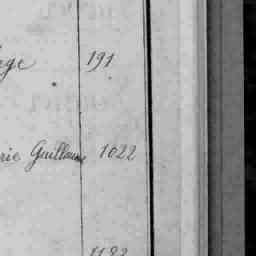 age 191
rie Guillaume 1022
1182